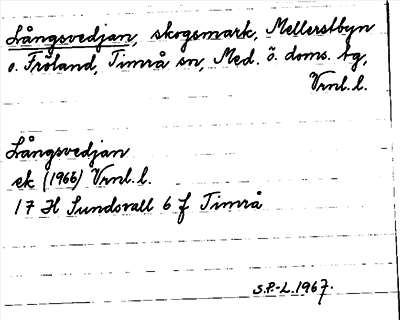 Långsvedjan, skogsmark, Mellerstbyn
o. Fröland, Timrå sn, Med. ö. doms. tg,
Vrnl. l.
Långsvedjan
ek (1966) Vrnl. l.
17 H Sundsvall 6 f Timrå
S.P.-L. 1967.